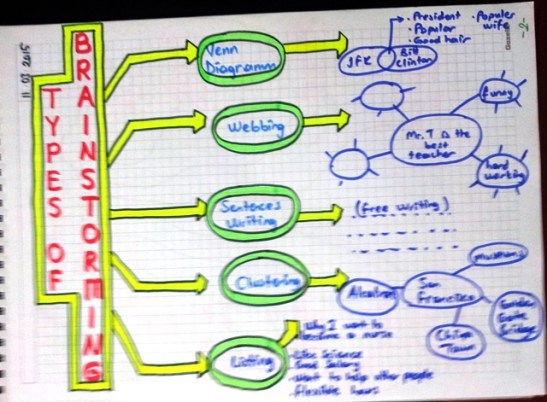 11.03.2015
-2-
TYPES OF
BRAINSTORMING
Venn
Diagramm
JFK
Bill
Clinton
· President
· Popular
· Good hair
· Populer
wife
Webbing
Mr. T is the
best
teacher
funny
hard
working
Sentences
Writing
(free writing)
Clustering
San
Francisco
Alcatraz
museums
China
Town
Golden
Gate
Bridge
Listing
Why I want to
become a nurse
· Like science
· Good salary
· Want to help other people
· Flexible hours